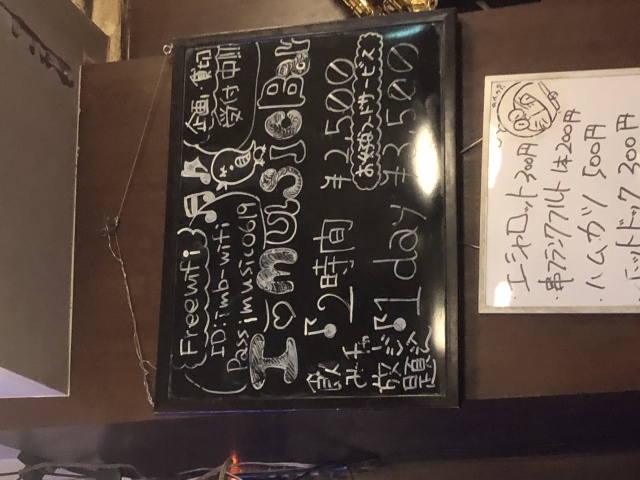 Freewifi
ID:imb-wifi
Pass imusic0619
企画・貸切
受付中!!
I♡MUSiCBar
飲み放題
チャージ込
♪2時間 ¥2,500
お好きなフードサービス
♪1day ¥3,500
・エシャロット 300円
・串フランクフルト 1本200円
・ハムカツ 500円
・ホットドック 300円